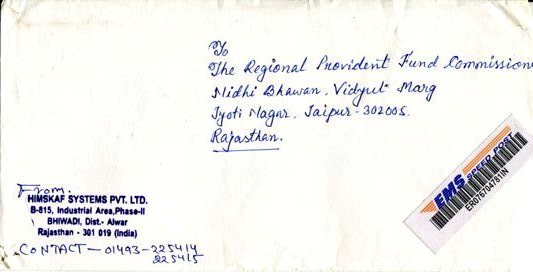 To
The Regional Provident Fund Commission
Nidhi Bhawan, Vidyut Marg
Jyoti Nagar, Jaipur-302005.
Rajasthan.
EMS SPEED POST
ER076704781IN
From,
HIMSKAF SYSTEMS PVT. LTD.
B-815, Industrial Area,Phase-II
BHIWADI, Dist.- Alwar
Rajasthan - 301 019 (India)
CONTACT - 01493-225414
225415